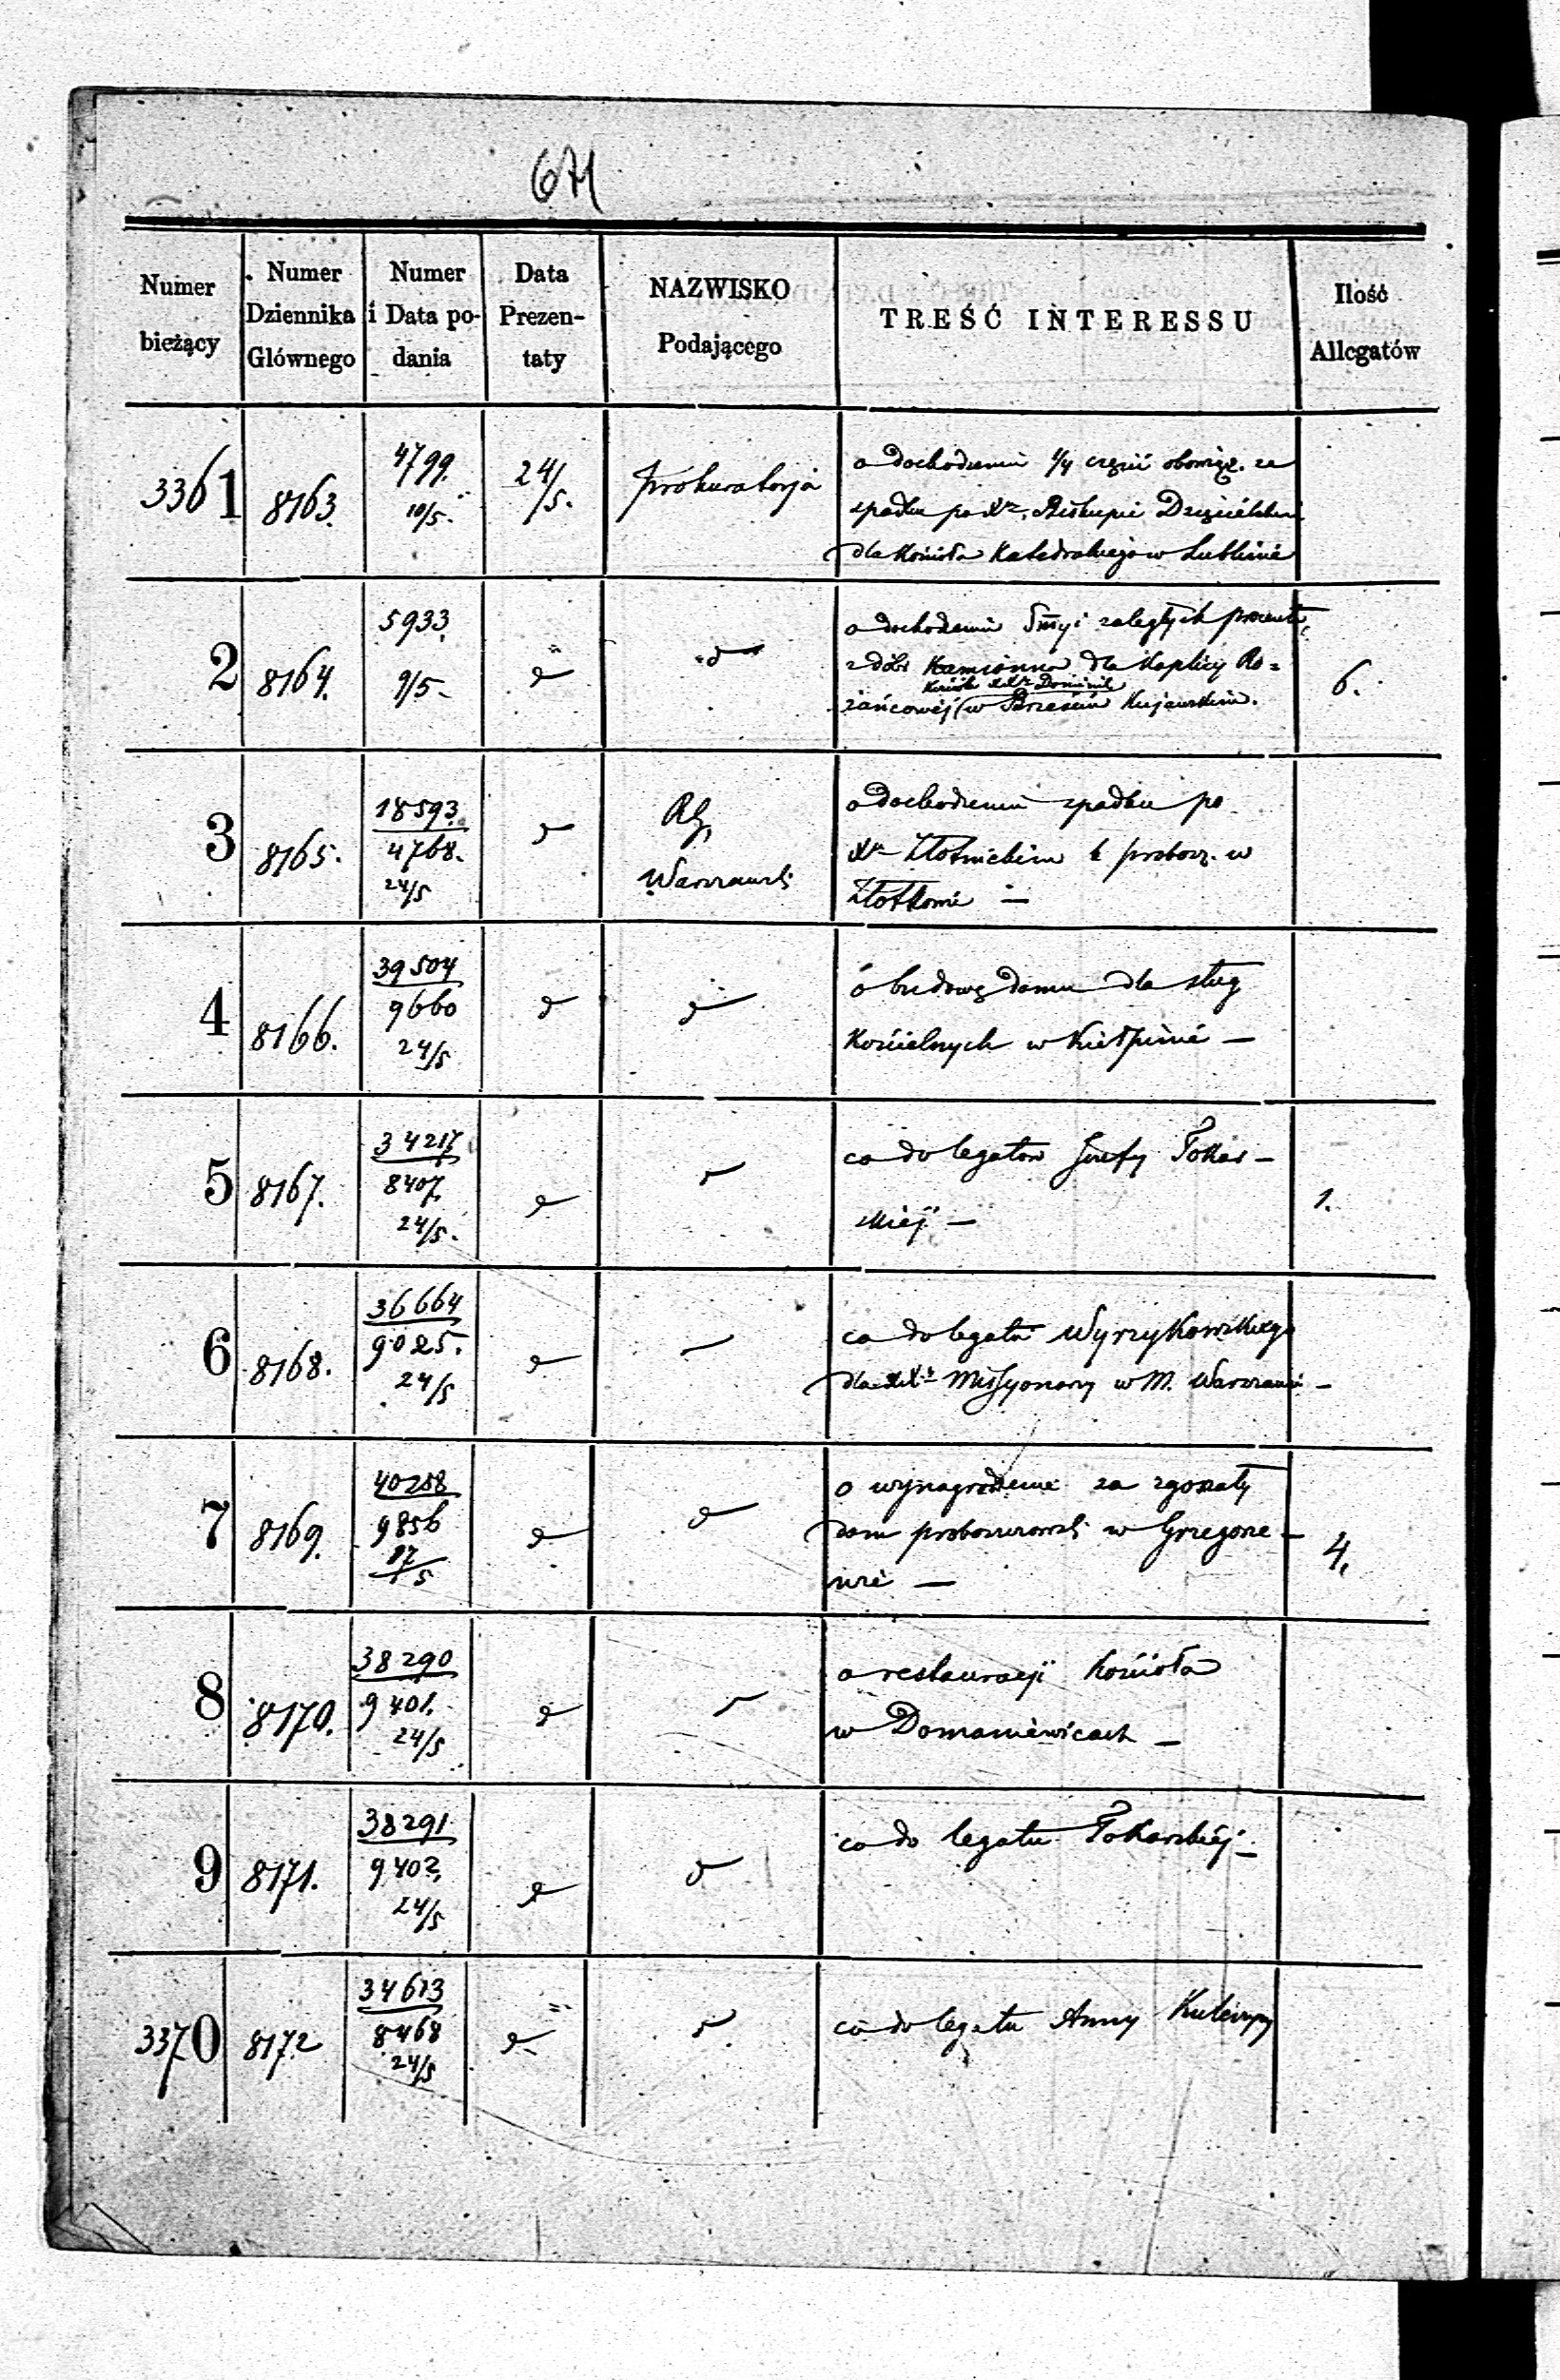 671
Numer bieżący
Numer Dziennika Głównego
Numer i Data podania
Data Prezentaty
NAZWISKO Podającego
TREŚĆ INTERESSU
Ilość Allegatów
3361
8163.
4799.
10/5.
24/5.
Prokuratorja
o dochodzeniu 1/4 części obowiąz. ze
spadku po Xr. Biskupie Dzięcielskim
dla Kościoła Katedralnego w Lublinie
2
8164.
5933.
9/5
d
d
o dochodzeniu Sm̄y i zaległych procent.
z dóbr Kamionna dla Kaplicy Ro=
Kościoła XXr. Dominik.
żańcowéj w Brześciu Kujawskim.
6.
3
8165.
18593.
4768.
24/5
d
RG.
Warszawski
o dochodzeniu spadku po
Xr Złotnickim b. probosz. w
4
8166.
39504
9660
24/5
d
d
o budowę domu dla sług
Kościelnych w Kiełpinie —
5
8167.
34217
8407.
24/5.
d
d
co do legatów Józefy Tokar—
skiéj —
1.
6
8168.
36664
9025.
24/5
d
co do legatu Wyrzykowskiego
dla XXr. Missyonarzy w M. Warszawie —
7
8169.
40258
9856
17/5
d
d
o wynagrodzenie za zgorzały
dom proboszczowski w Grzegorze—
wie —
4.
8
8170.
38290
9401.
24/5
d
d
o restauracji Kościoła
w Domaniewicach —
9
8171.
38291
9402.
24/5
d
d
co do legatu Tokarskiéj —
3370
8172
34613
8468
24/5
d
d
co do legatu Anny